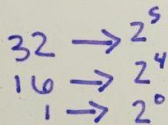 32 → 2⁵
16 → 2⁴
1 → 2⁰